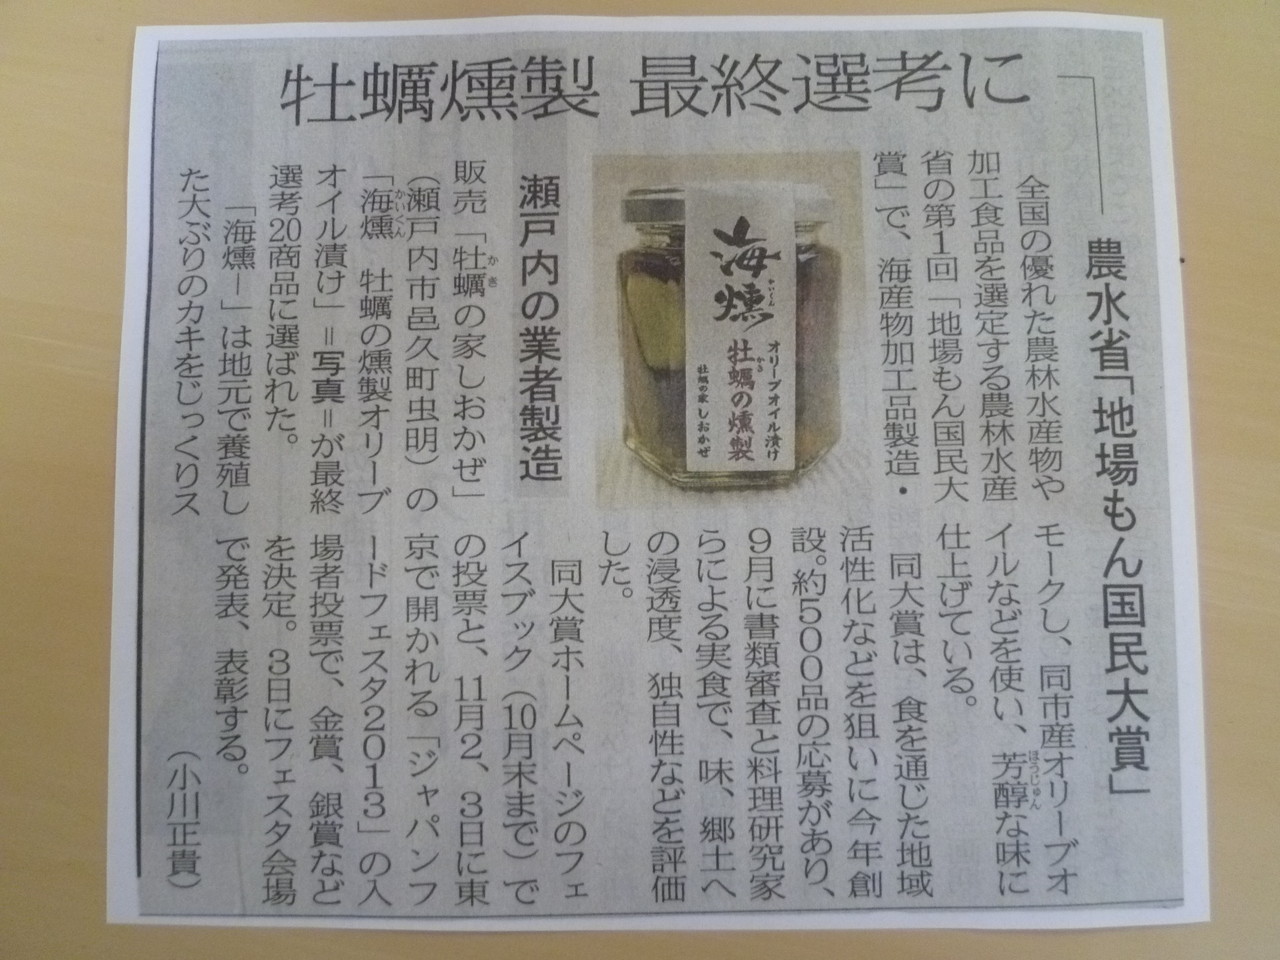 牡蠣燻製 最終選考に
農水省「地場もん国民大賞」
全国の優れた農林水産物や
加工食品を選定する農林水産
省の第1回「地場もん国民大
賞」で、海産物加工品製造・
海燻
かいくん
オリーブオイル漬け
牡蠣の燻製
かき
牡蠣の家しおかぜ
瀬戸内の業者製造
販売「牡蠣の家しおかぜ」
かき
(瀬戸内市邑久町虫明)の
「海燻 牡蠣の燻製オリーブ
かいくん
オイル漬け」＝写真＝が最終
選考20商品に選ばれた。
「海燻―」は地元で養殖し
た大ぶりのカキをじっくりス
モークし、同市産オリーブオ
イルなどを使い、芳醇な味に
ほうじゅん
仕上げている。
同大賞は、食を通じた地域
活性化などを狙いに今年創
設。約500品の応募があり、
9月に書類審査と料理研究家
らによる実食で、味、郷土へ
の浸透度、独自性などを評価
した。
同大賞ホームページのフェ
イスブック(10月末まで)で
の投票と、11月2、3日に東
京で開かれる「ジャパンフ
ードフェスタ2013」の入
場者投票で、金賞、銀賞など
を決定。3日にフェスタ会場
で発表、表彰する。
(小川正貴)